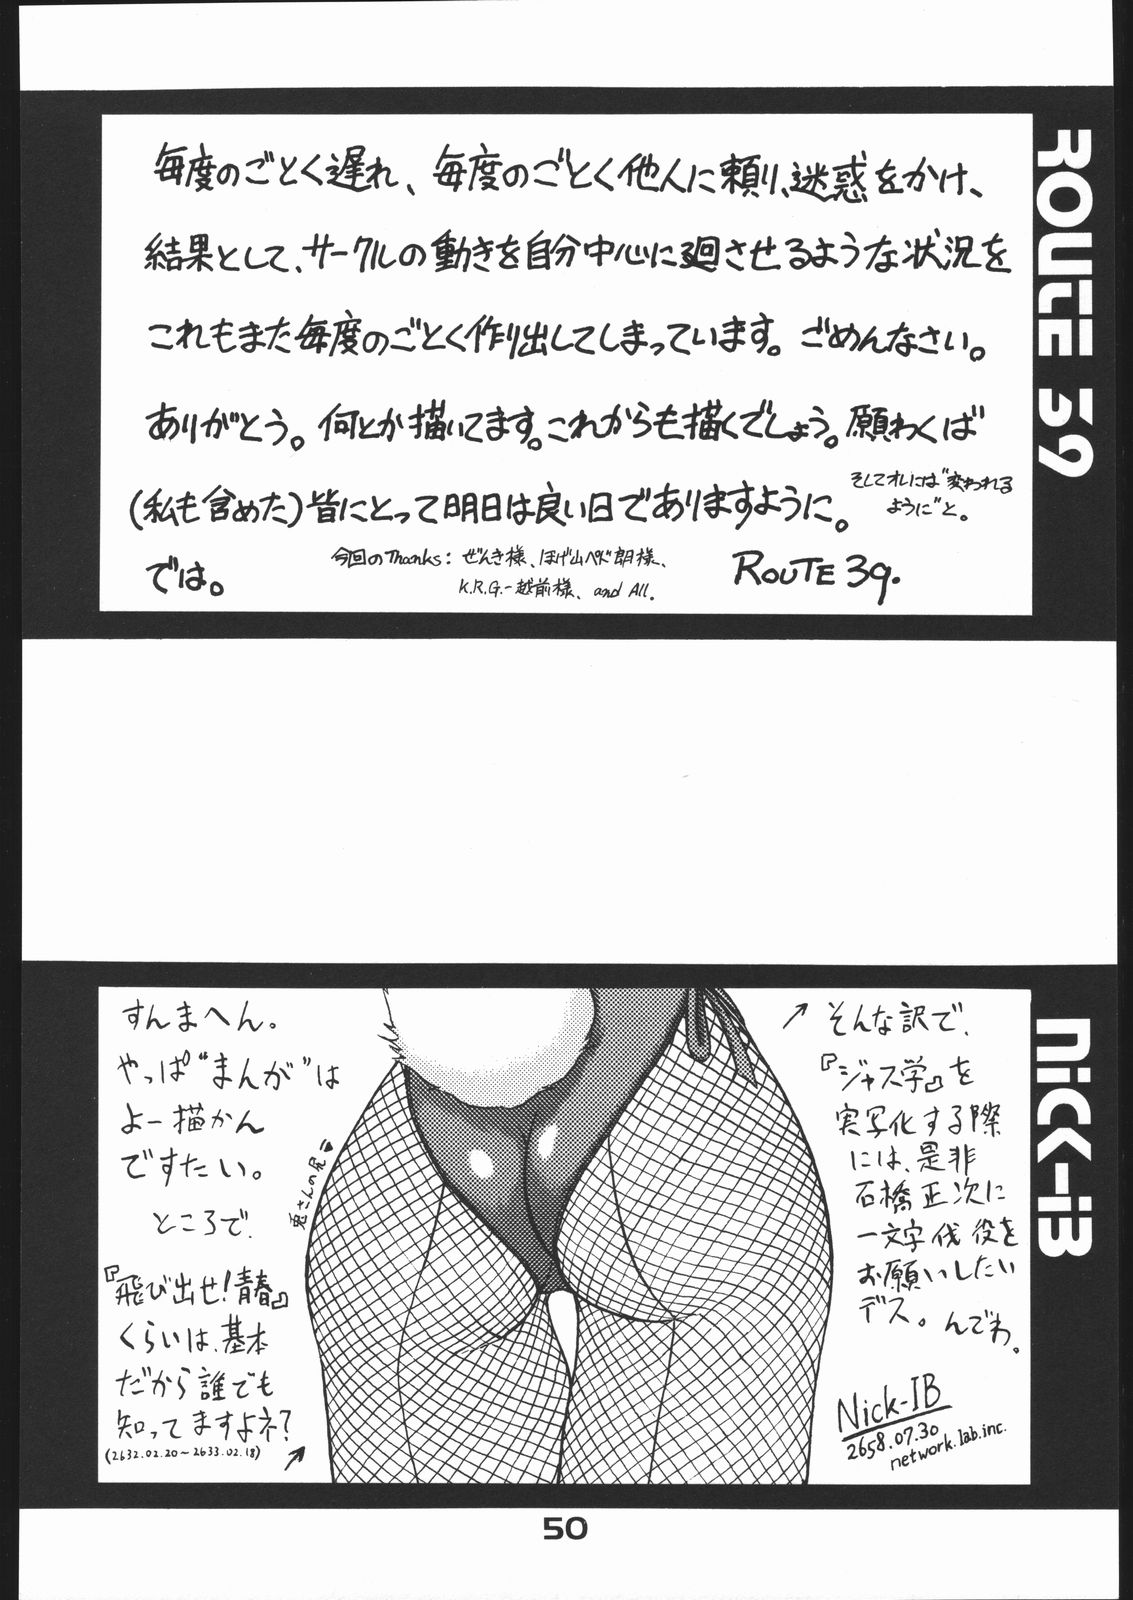 ROUTE 39
毎度のごとく遅れ、毎度のごとく他人に頼り、迷惑をかけ、
結果として、サークルの動きを自分中心に廻させるような状況を
これもまた毎度のごとく作り出してしまっています。ごめんなさい。
ありがとう。何とか描いてます。これからも描くでしょう。願わくば
(私も含めた)皆にとって明日は良い日でありますように。
そしてオレには“変われる
ように”と。
では。
今回のThanks: ぜんき様、ほげ山ペド郎様、
K.R.G.-越前様、and All.
ROUTE 39.
NICK-IB
すんまへん。
やっぱ“まんが”は
よー描かん
ですたい。
ところで、
『飛び出せ!青春』
くらいは、基本
だから誰でも
知ってますよネ?
(2632.02.20〜2633.02.18)
兎さんの尻♥
そんな訳で、
『ジャス学』を
実写化する際
には、是非
石橋正次に
一文字伐役を
お願いしたい
デス。んでわ。
Nick-IB
2658.07.30
network.lab.inc.
50